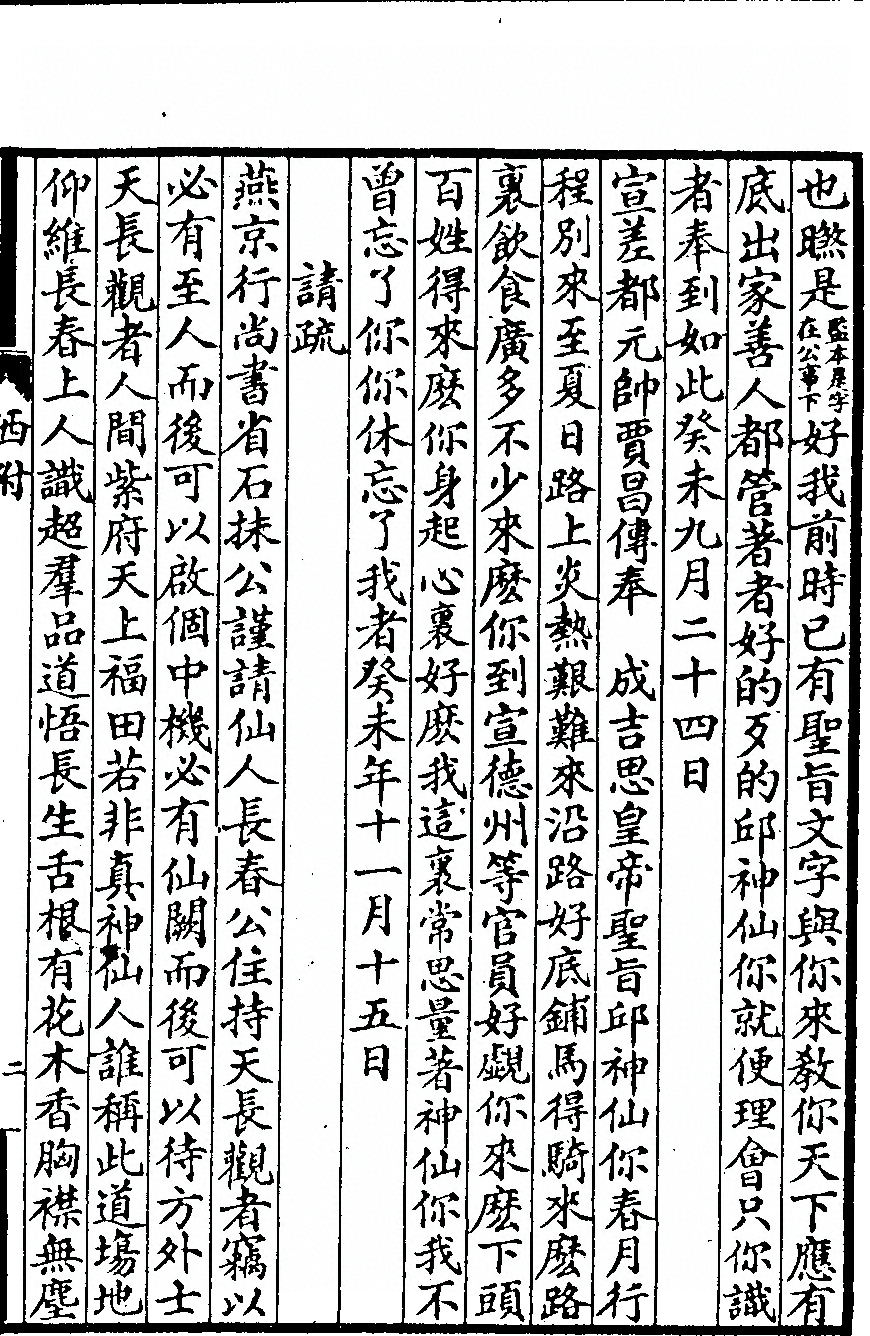 也㬠是監本是字在公事下好我前時已有聖旨文字與你來教你天下應有
底出家善人都管著者好的歹的邱神仙你就便理會只你識
者奉到如此癸未九月二十四日
宣差都元帥賈昌傳奉　成吉思皇帝聖旨邱神仙你春月行
程別來至夏日路上炎熱艱難來沿路好底鋪馬得騎來麽路
裏飲食廣多不少來麽你到宣德州等官員好覷你來麽下頭
百姓得來麽你身起心裏好麽我這裏常思量著神仙你我不
曾忘了你你休忘了我者癸未年十一月十五日
請疏
燕京行尚書省石抹公謹請仙人長春公住持天長觀者竊以
必有至人而後可以啟個中機必有仙闕而後可以待方外士
天長觀者人間紫府天上福田若非真神仙人誰稱此道場地
仰維長春上人識超羣品道悟長生舌根有花木香胸襟無塵
西附
二